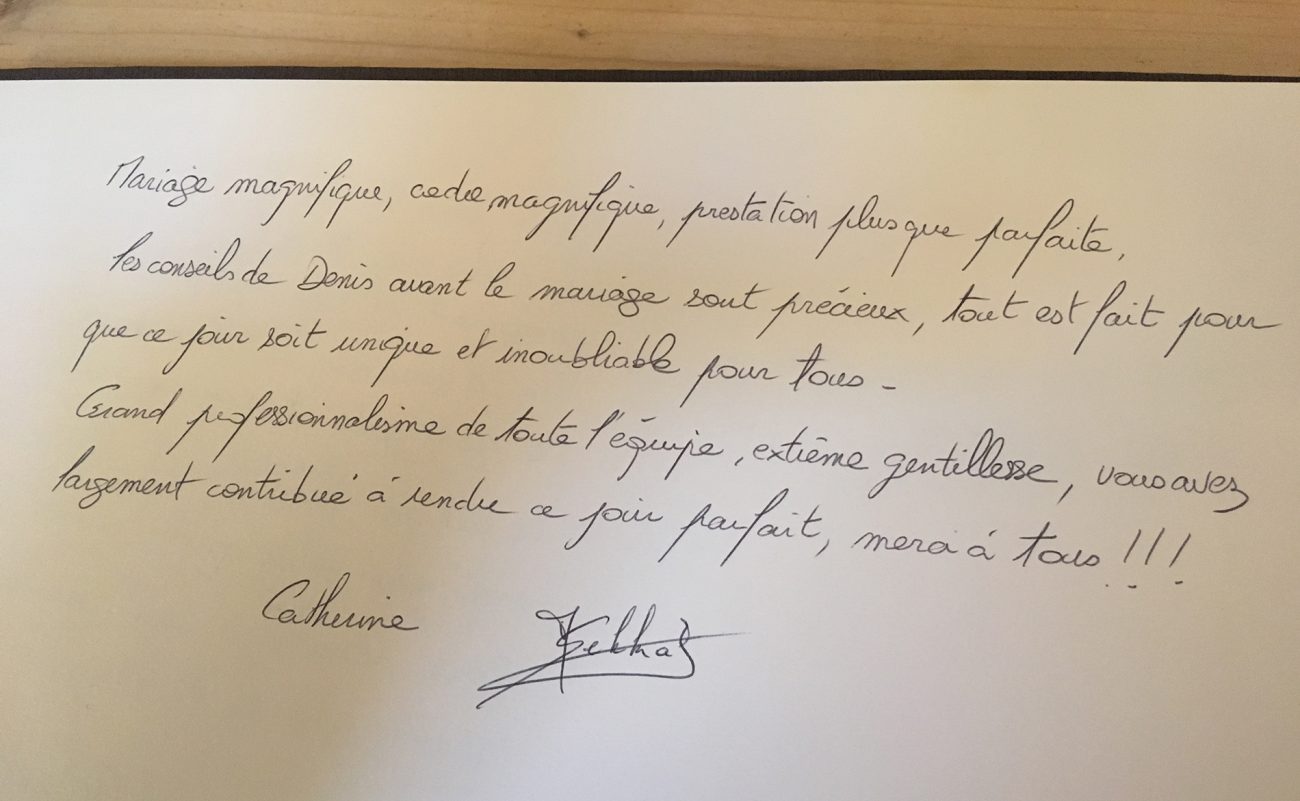 Mariage magnifique, cadre magnifique, prestation plus que parfaite,
les conseils de Denis avant le mariage sont précieux, tout est fait pour
que ce jour soit unique et inoubliable pour tous -
Grand professionnalisme de toute l'équipe, extrême gentillesse, vous avez
largement contribué à rendre ce jour parfait, merci à tous !!!
Catherine